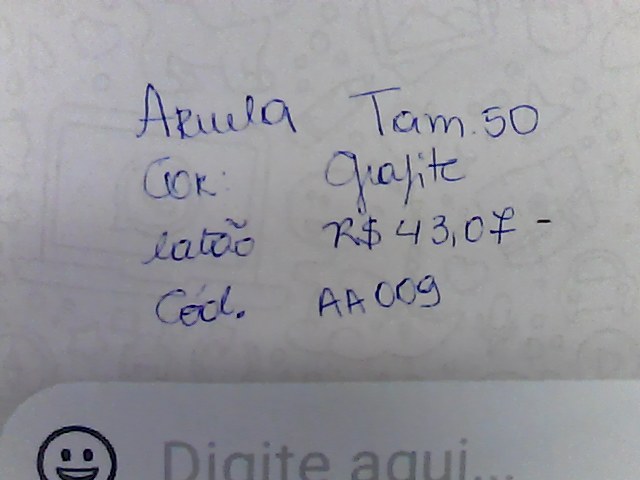 Aruela Tam. 50
Cor: Grafite
latão R$ 43,07 -
Cód. AA009
Digite aqui...